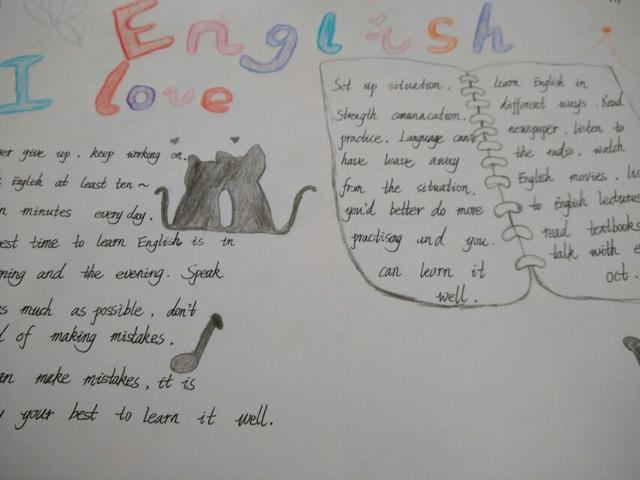 English
I love
er give up, keep working on.
English at least ten ~
minutes every day.
est time to learn English is in
ning and the evening. Speak
s much as possible, don't
of making mistakes.
an make mistakes, it is
your best to learn it well.
Set up situation,
Strength comunacation.
practice. Language can't
have leave away
from the situation,
you'd better do more
practising and you
can learn it
well.
learn English in
different ways. Read
newspaper, listen to
the radio, watch
English movies, lis
to English lectures
read textbooks
talk with e
oct.